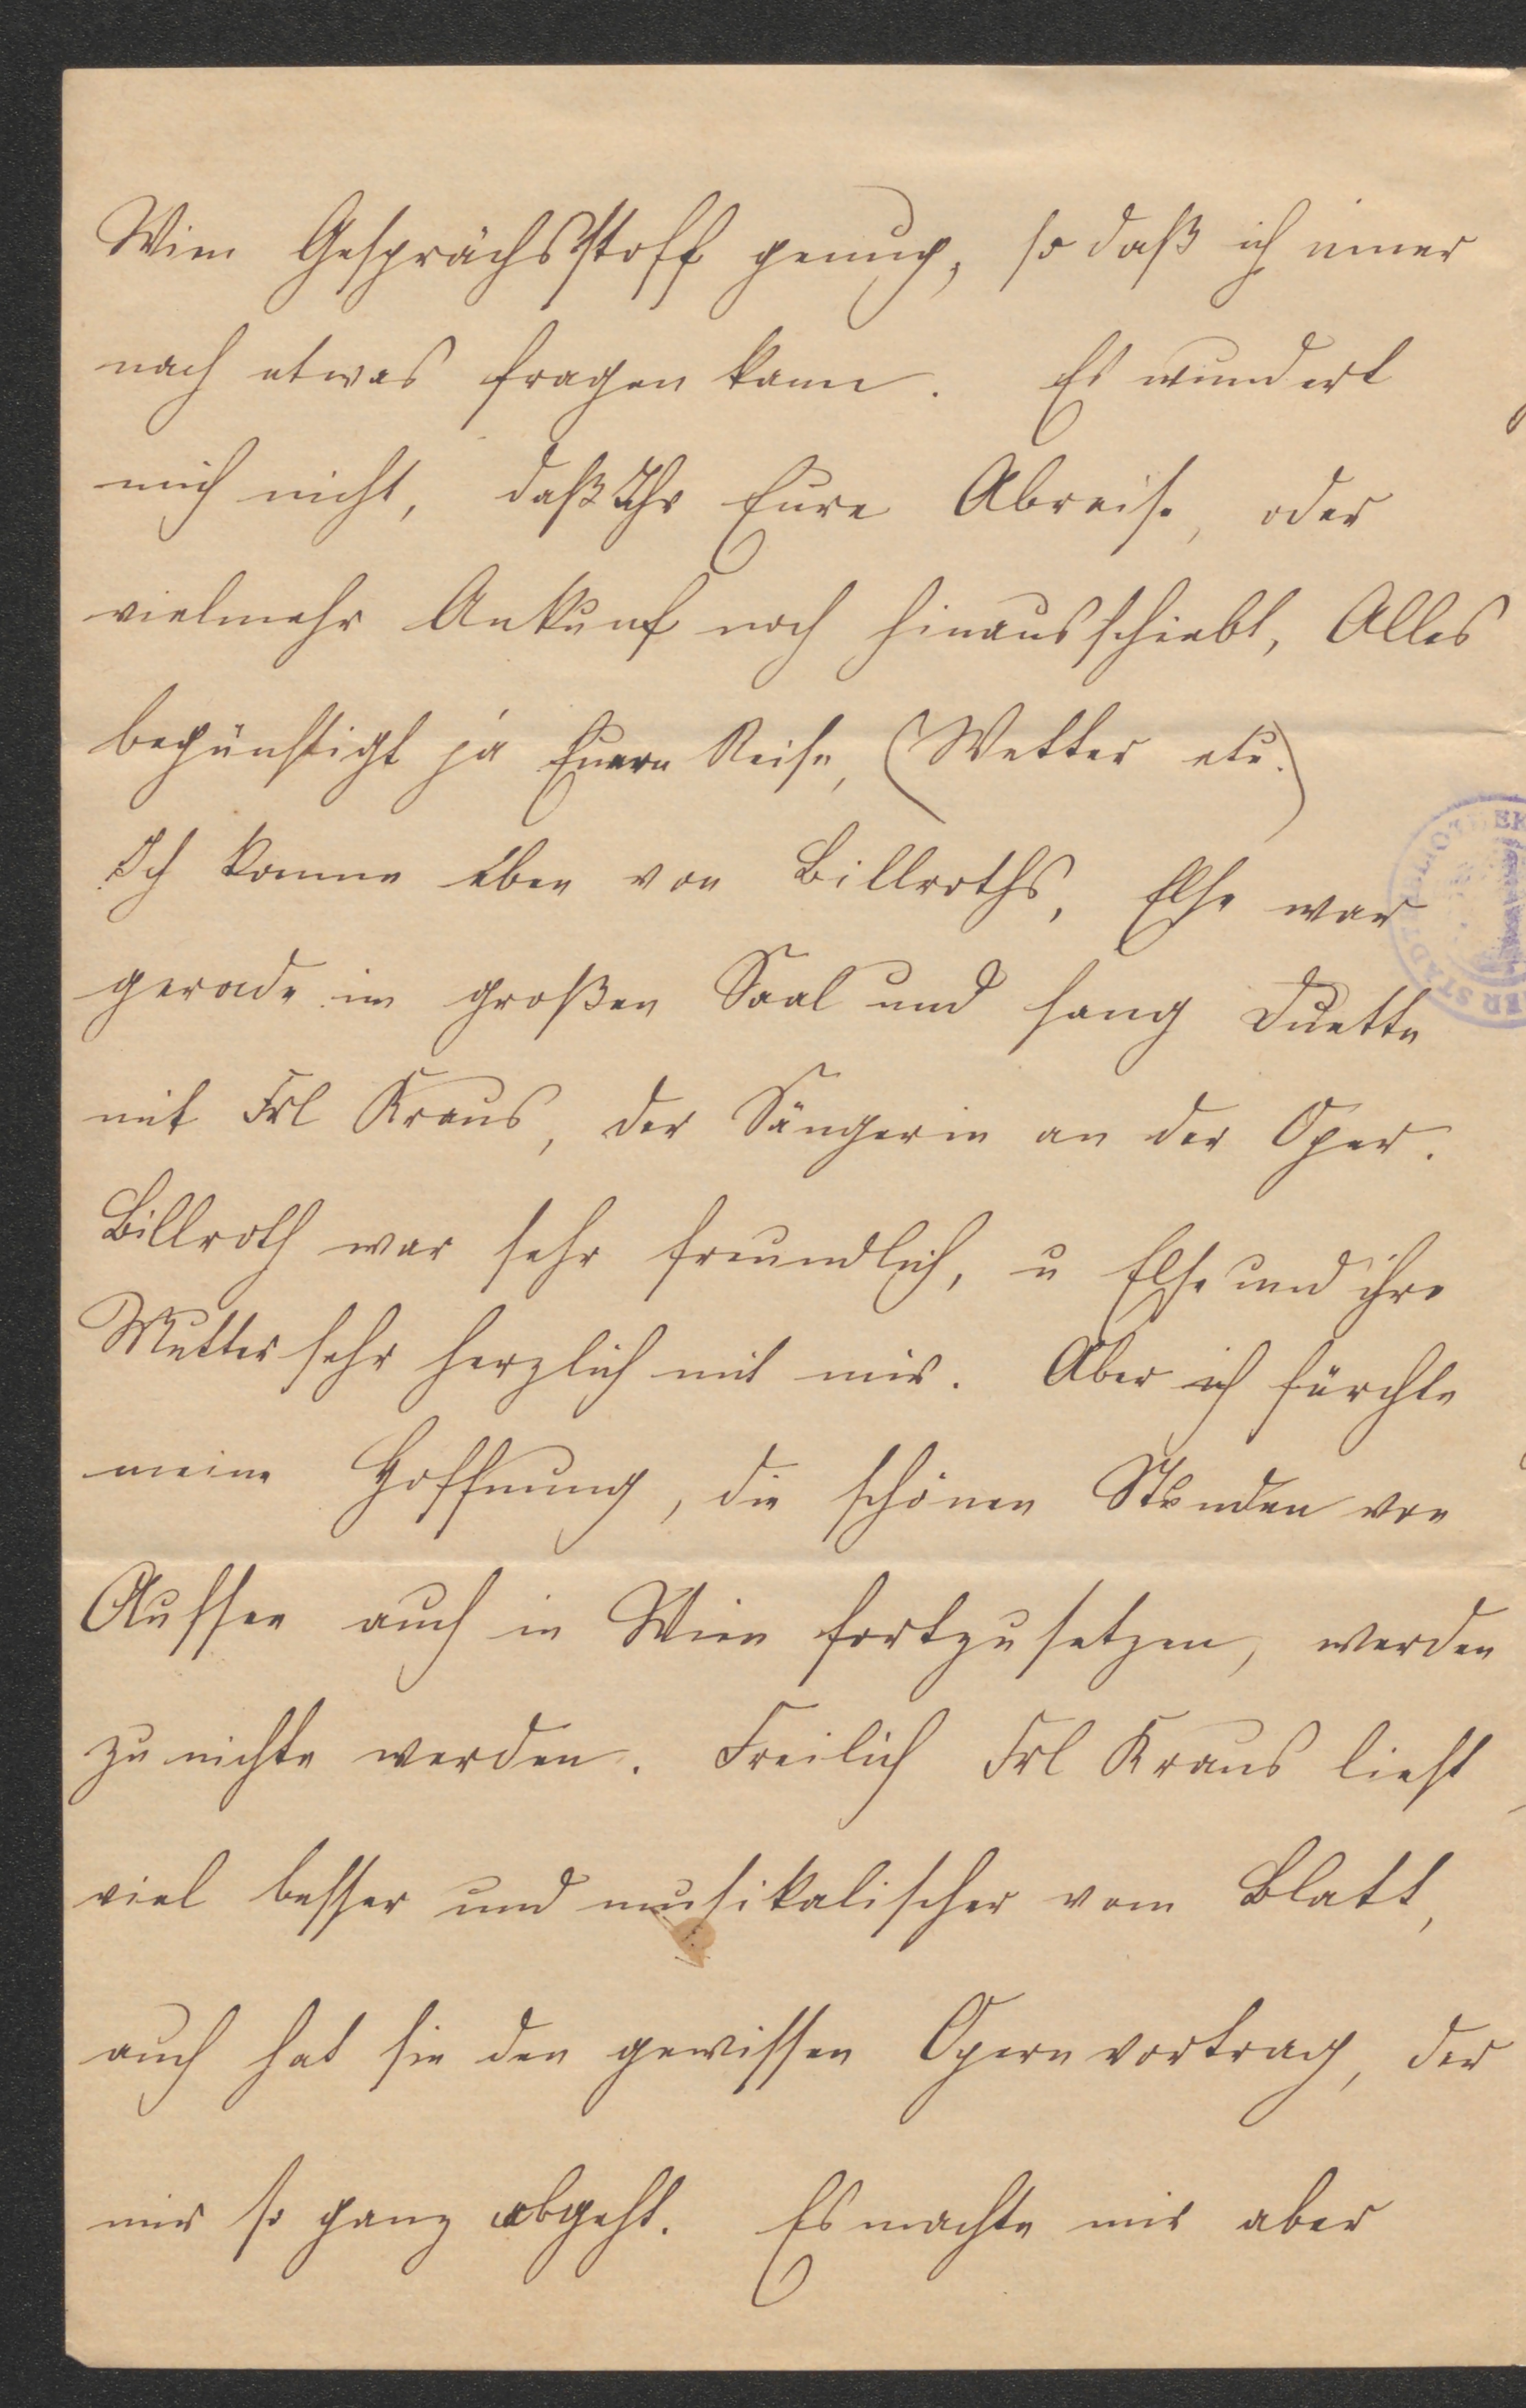 Wien Gesprächsstoff genug, so daß ich imer
nach etwas fragen kann. Es wundert
mich nicht, daß Ihr Eure Abreise, oder
vielmehr Ankunf noch hinausschiebt, Alles
begünstigt ja Euere Reise, (Wetter etc.)
Ich komme eben von Billroths, Else war
gerade im großen Saal und sang Duette
mit Frl Kraus, der Sängerin an der Oper.
Billroth war sehr freundlich, u Else und ihre
Mutter sehr herzlich mit mir. Aber ich fürchte
meine Hoffnung, die schönen Stunden von
Aussee auch in Wien fortzusetzen, werden
zu nichte werden. Freilich Frl Kraus liest
viel besser und musikalischer vom Blatt,
auch hat sie den gewissen Opernvortrag, der
mir so ganz abgeht. Es machte mir aber